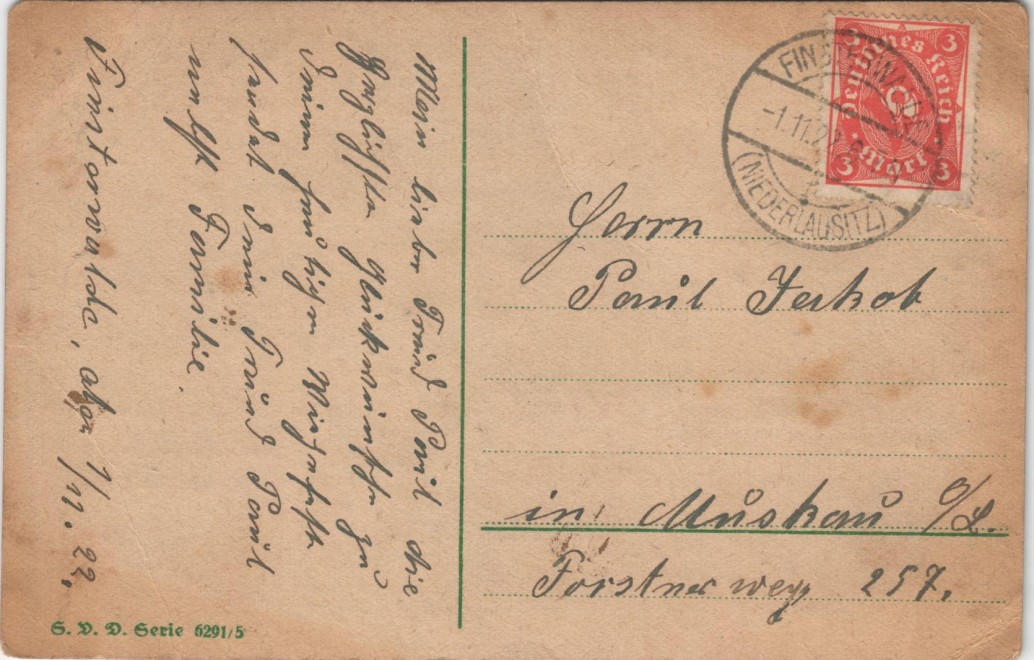 Mein lieber Freund Paul die
herzlichsten Glückwünsche zu
deinem heutigen Wiegenfeste
sendet dein Freund Paul
nebst Familie.
Finsterwalde, den 1/11. 22.
S. V. D. Serie 6291/5
FINSTERWALDE
-1.11.22
(NIEDERLAUSITZ)
3 3
Deutsches Reich
3 Mark 3
Herrn
Paul Jakob
in Muskau O/L.
Forstner weg 257.